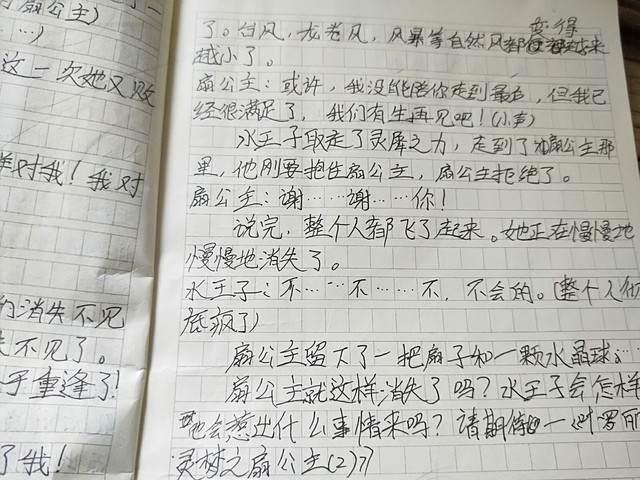 扇公主)
……)
这一次她又败
样对我！我对
的消失不见
失不见了。
于重逢了！
了我！
变得
了。台风，龙卷风，风暴等自然风都越来
越小了。
扇公主：或许，我没能陪你走到最后，但我已
经很满足了，我们有生再见吧！(小声)
水王子取走了灵犀之力，走到了扇公主那
里，他刚要抱住扇公主，扇公主拒绝了。
扇公主：谢……谢……你！
说完，整个人都飞了起来。她正在慢慢地
慢慢地消失了。
水王子：不……不……不，不会的。(整个人彻
底疯了)
扇公主留下了一把扇子和一颗水晶球……
扇公主就这样消失了吗？水王子会怎样
他会惹出什么事情来吗？请期待《叶罗丽
灵梦之扇公主(2)》